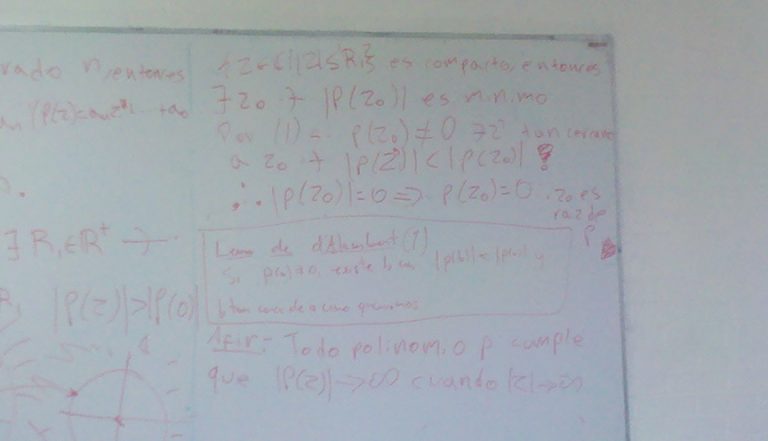 rado n, entonces
P(z)=a_n z^n ... + a_0
∃ R₁ ∈ R⁺ →
|P(z)|>|P(0)|
{z∈C | |z|≤R₁} es compacto, entonces
∃ z₀ → |P(z₀)| es mínimo
Por (1) P(z₀)≠0 ∃ z' tan cercano
a z₀ → |P(z')|<|P(z₀)|
∴ |P(z₀)|=0 ⇒ P(z₀)=0 . z₀ es
raíz de
P
Lema de d'Alembert (1)
Si p(a)≠0, existe b con |p(b)|<|p(a)| y
b tan cerca de a como queramos
Afir: Todo polinomio p cumple
que |P(z)|→∞ cuando |z|→∞